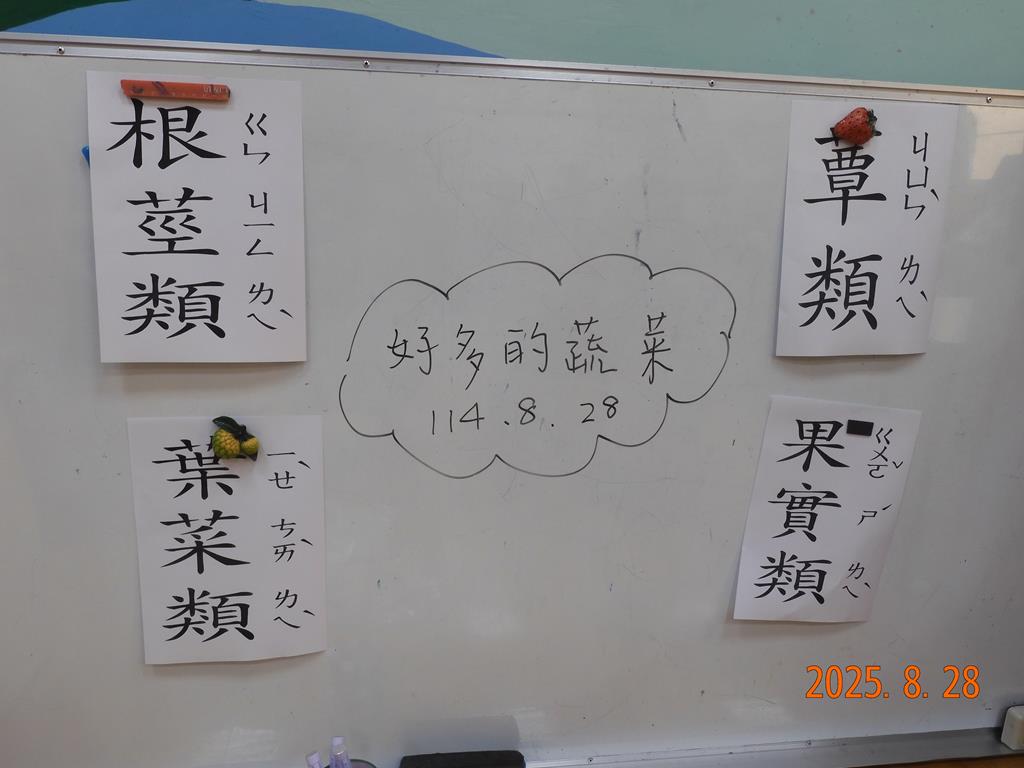 根莖類
ㄍㄣ ㄐㄧㄥ ㄌㄟˋ
蕈類
ㄐㄩㄣˋ ㄌㄟˋ
好多的蔬菜
114.8.28
葉菜類
ㄧㄝˋ ㄘㄞˋ ㄌㄟˋ
果實類
ㄍㄨㄛˇ ㄕˊ ㄌㄟˋ
2025. 8. 28